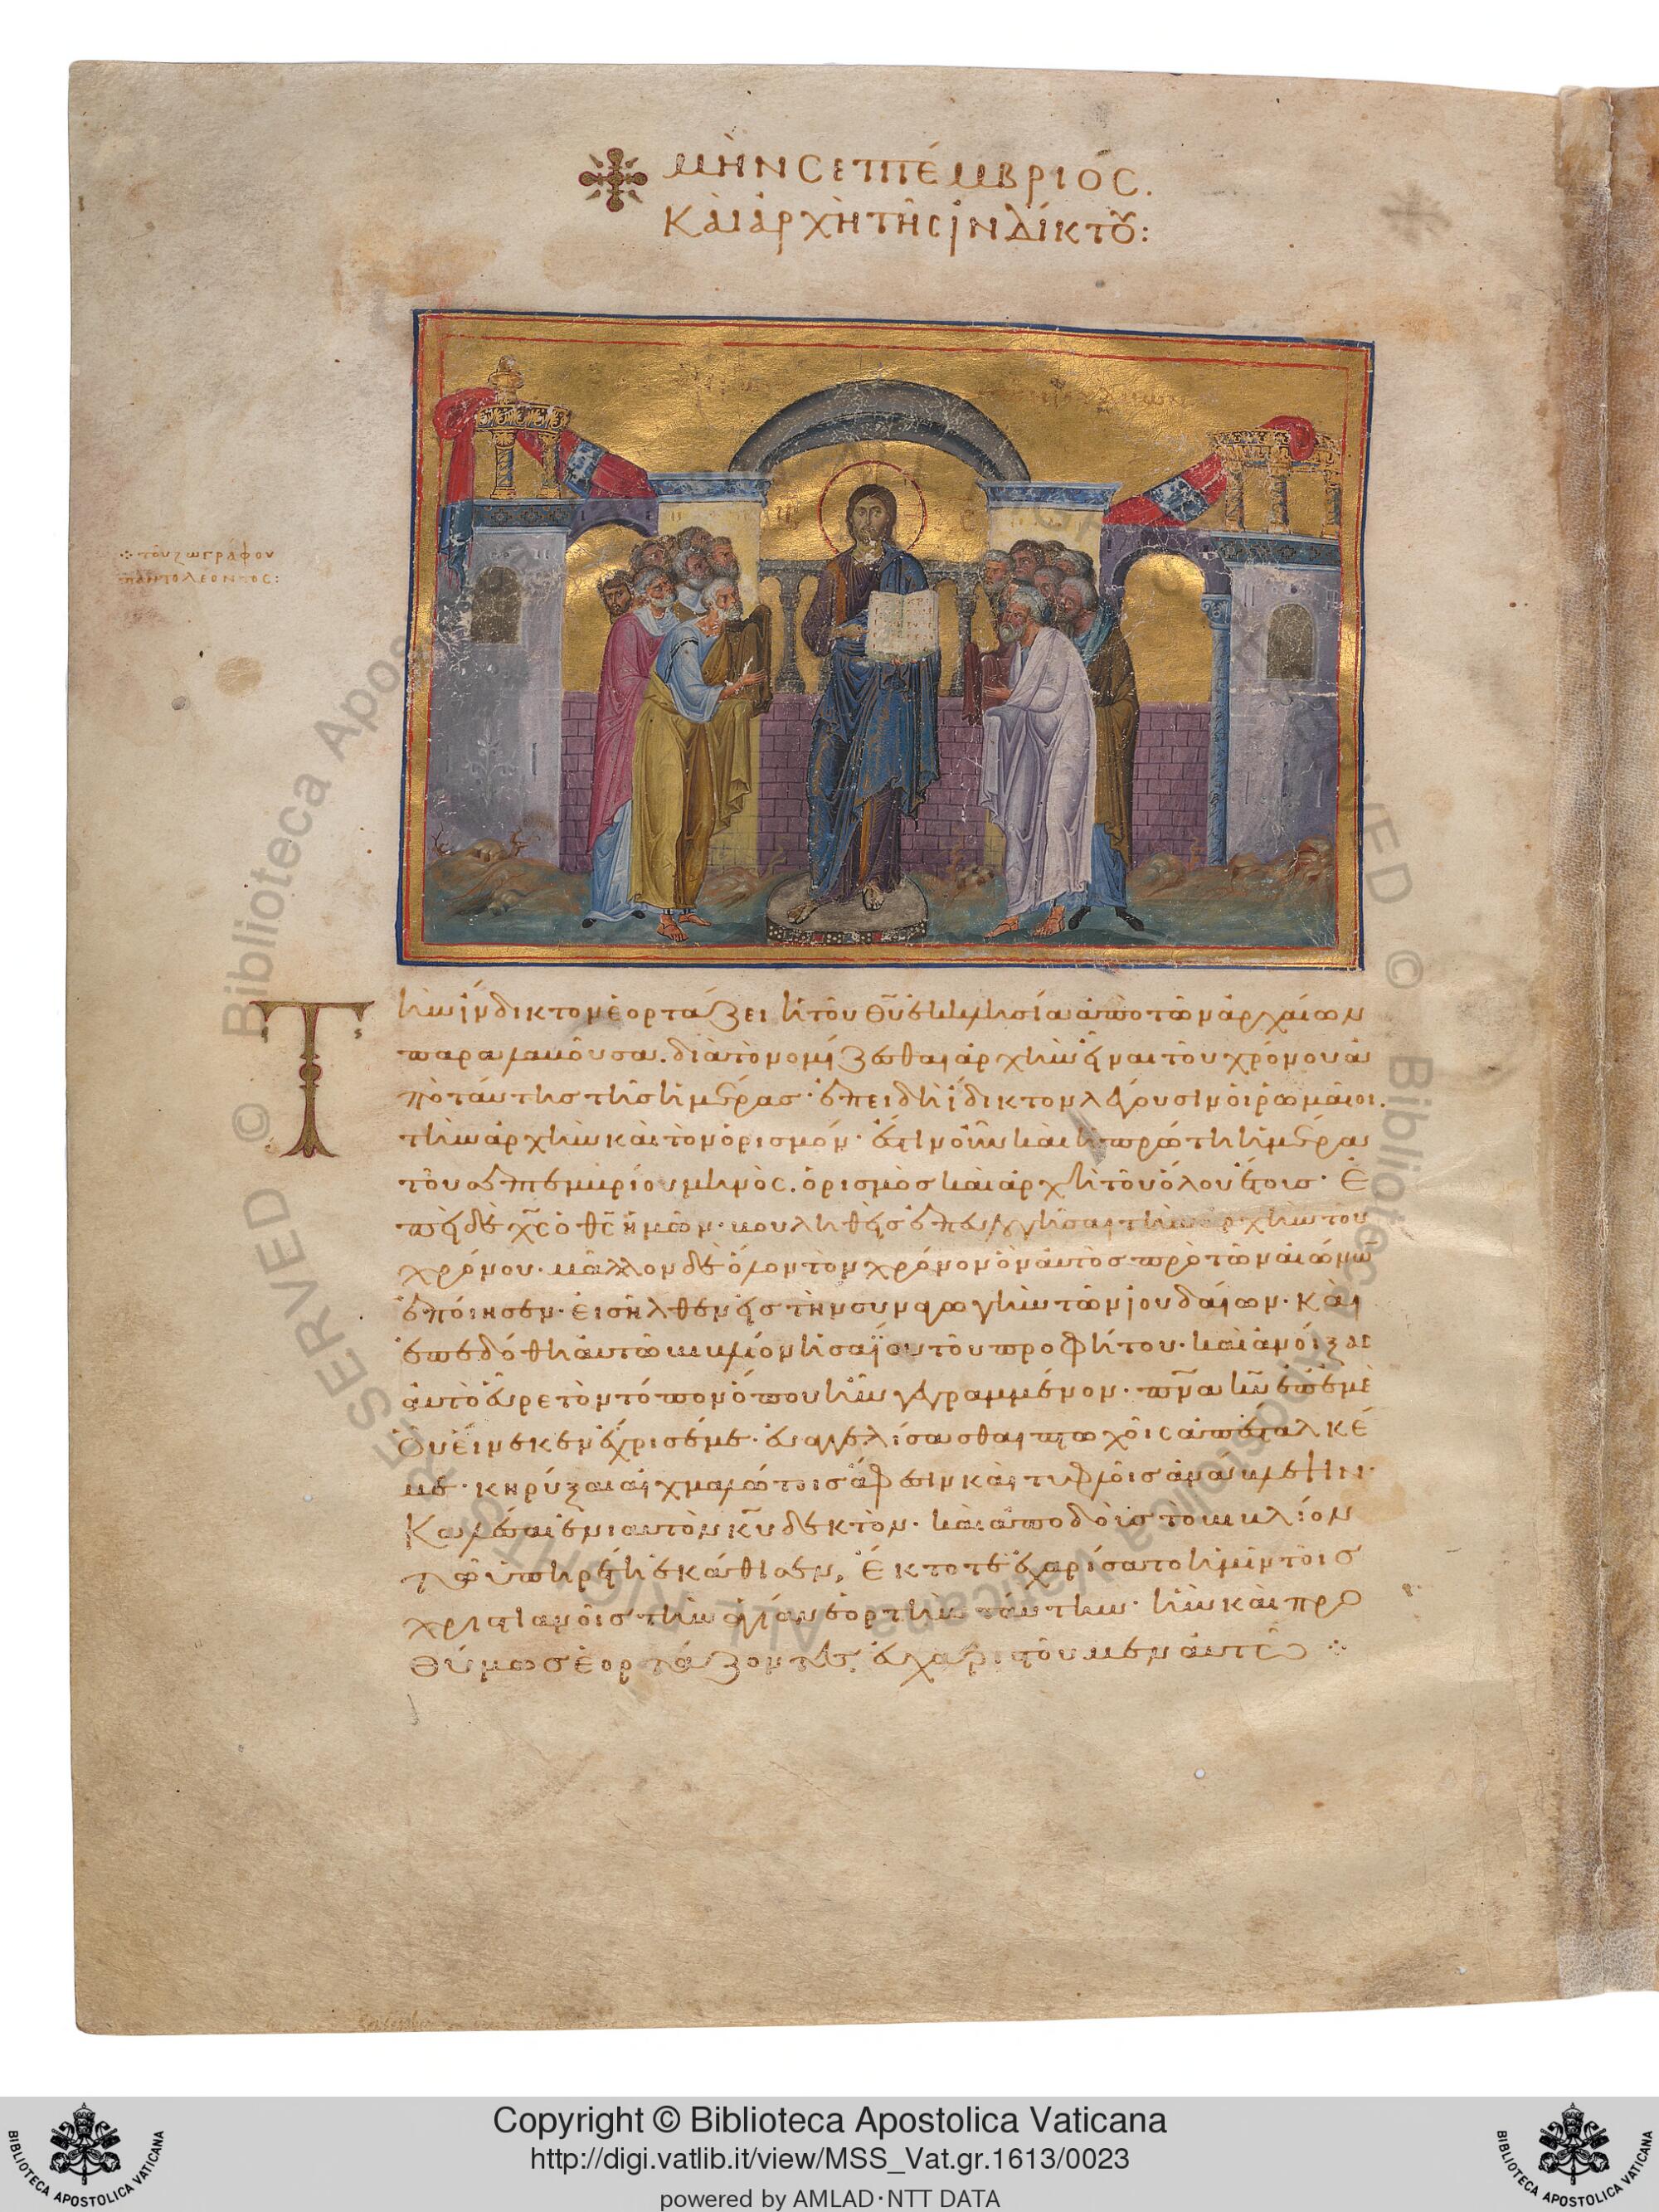 μὴν Σεπτέμβριος.
Καὶ ἀρχὴ τῆς ἰνδίκτου:
τοῦ ζωγράφου
παντολέοντος:
Τὴν ἴνδικτον ἑορτάζει ἡ τοῦ θῡ ἐκκλησία ἀπὸ τῶν ἀρχαίων
παραλαβοῦσα. διὰ τὸ νομίζεσθαι ἀρχὴν εἶναι τοῦ χρόνου ἀ
πὸ ταύτης τῆς ἡμέρας· ἐπειδὴ ἴδικτον λέγουσιν οἱ ῥωμαῖοι.
τὴν ἀρχὴν καὶ τὸν ὁρισμόν· ἔστιν οὖν καὶ ἡ πρώτη ἡμέρα
τοῦ σεπτεμβρίου μηνὸς. ὁρισμὸς καὶ ἀρχὴ τοῦ ὅλου ἔτους· Ἐ
πεὶ δὲ χς̄ ὁ θς̄ ἡμῶν· βουληθεὶς ἐπευλογῆσαι τὴν ἀρχὴν τοῦ
χρόνου· μᾶλλον δὲ ὅλον τὸν χρόνον ὃν αὐτὸς πρὸ τῶν αἰώνω
ἐποίησεν· εἰσῆλθεν εἰς τὴν συναγωγὴν τῶν ἰουδαίων· καὶ
ἐπεδόθη αὐτῶ βιβλίον ἡσαΐου τοῦ προφήτου· καὶ ἀνοίξας
αὐτὸ εὗρε τὸν τόπον ὅπου ἦν γεγραμμένον· πν̄α κῡ ἐπ' ἐμὲ
οὗ εἵνεκεν ἔχρισέ με· εὐαγγελίσασθαι πτωχοῖς ἀπέσταλκέ
με· κηρύξαι αἰχμαλώτοις ἄφεσιν καὶ τυφλοῖς ἀνάβλεψιν·
Καλέσαι ἐνιαυτὸν κῡ δεκτὸν· καὶ ἀποδοὺς τὸ βιβλίον
τῶ ὑπηρέτη ἐκάθισεν, Ἔκτοτε ἐχαρίσατο ἡμῖν τοῖς
χριστιανοῖς τὴν ἁγίαν ἑορτὴν ταύτην· ἣν καὶ προ
θύμως ἑορτάζοντες, εὐχαριστοῦμεν αὐτῶ
Copyright © Biblioteca Apostolica Vaticana
http://digi.vatlib.it/view/MSS_Vat.gr.1613/0023
powered by AMLAD·NTT DATA
BIBLIOTECA APOSTOLICA VATICANA
BIBLIOTECA APOSTOLICA VATICANA